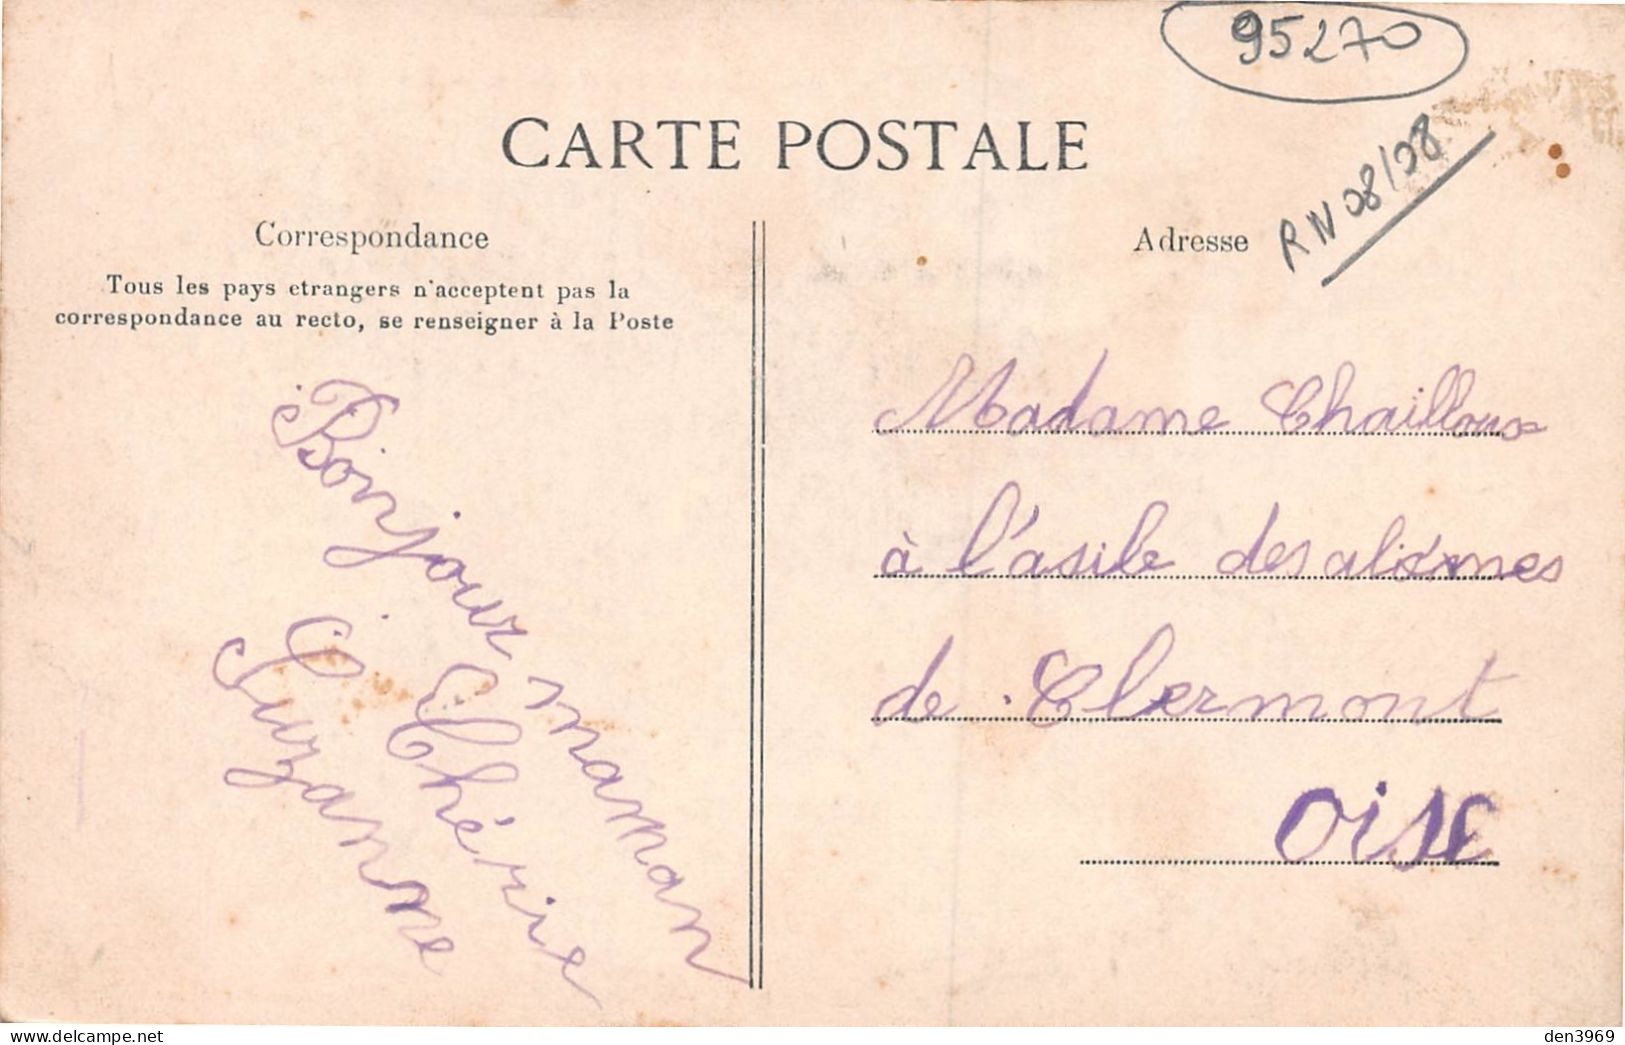 95270
CARTE POSTALE
RN 08/08
Correspondance
Tous les pays etrangers n'acceptent pas la
correspondance au recto, se renseigner à la Poste
Bonjour maman
Chérie
Suzanne
Adresse
Madame Chailloux
à l'asile des aliénés
de Clermont
OISE
den3969